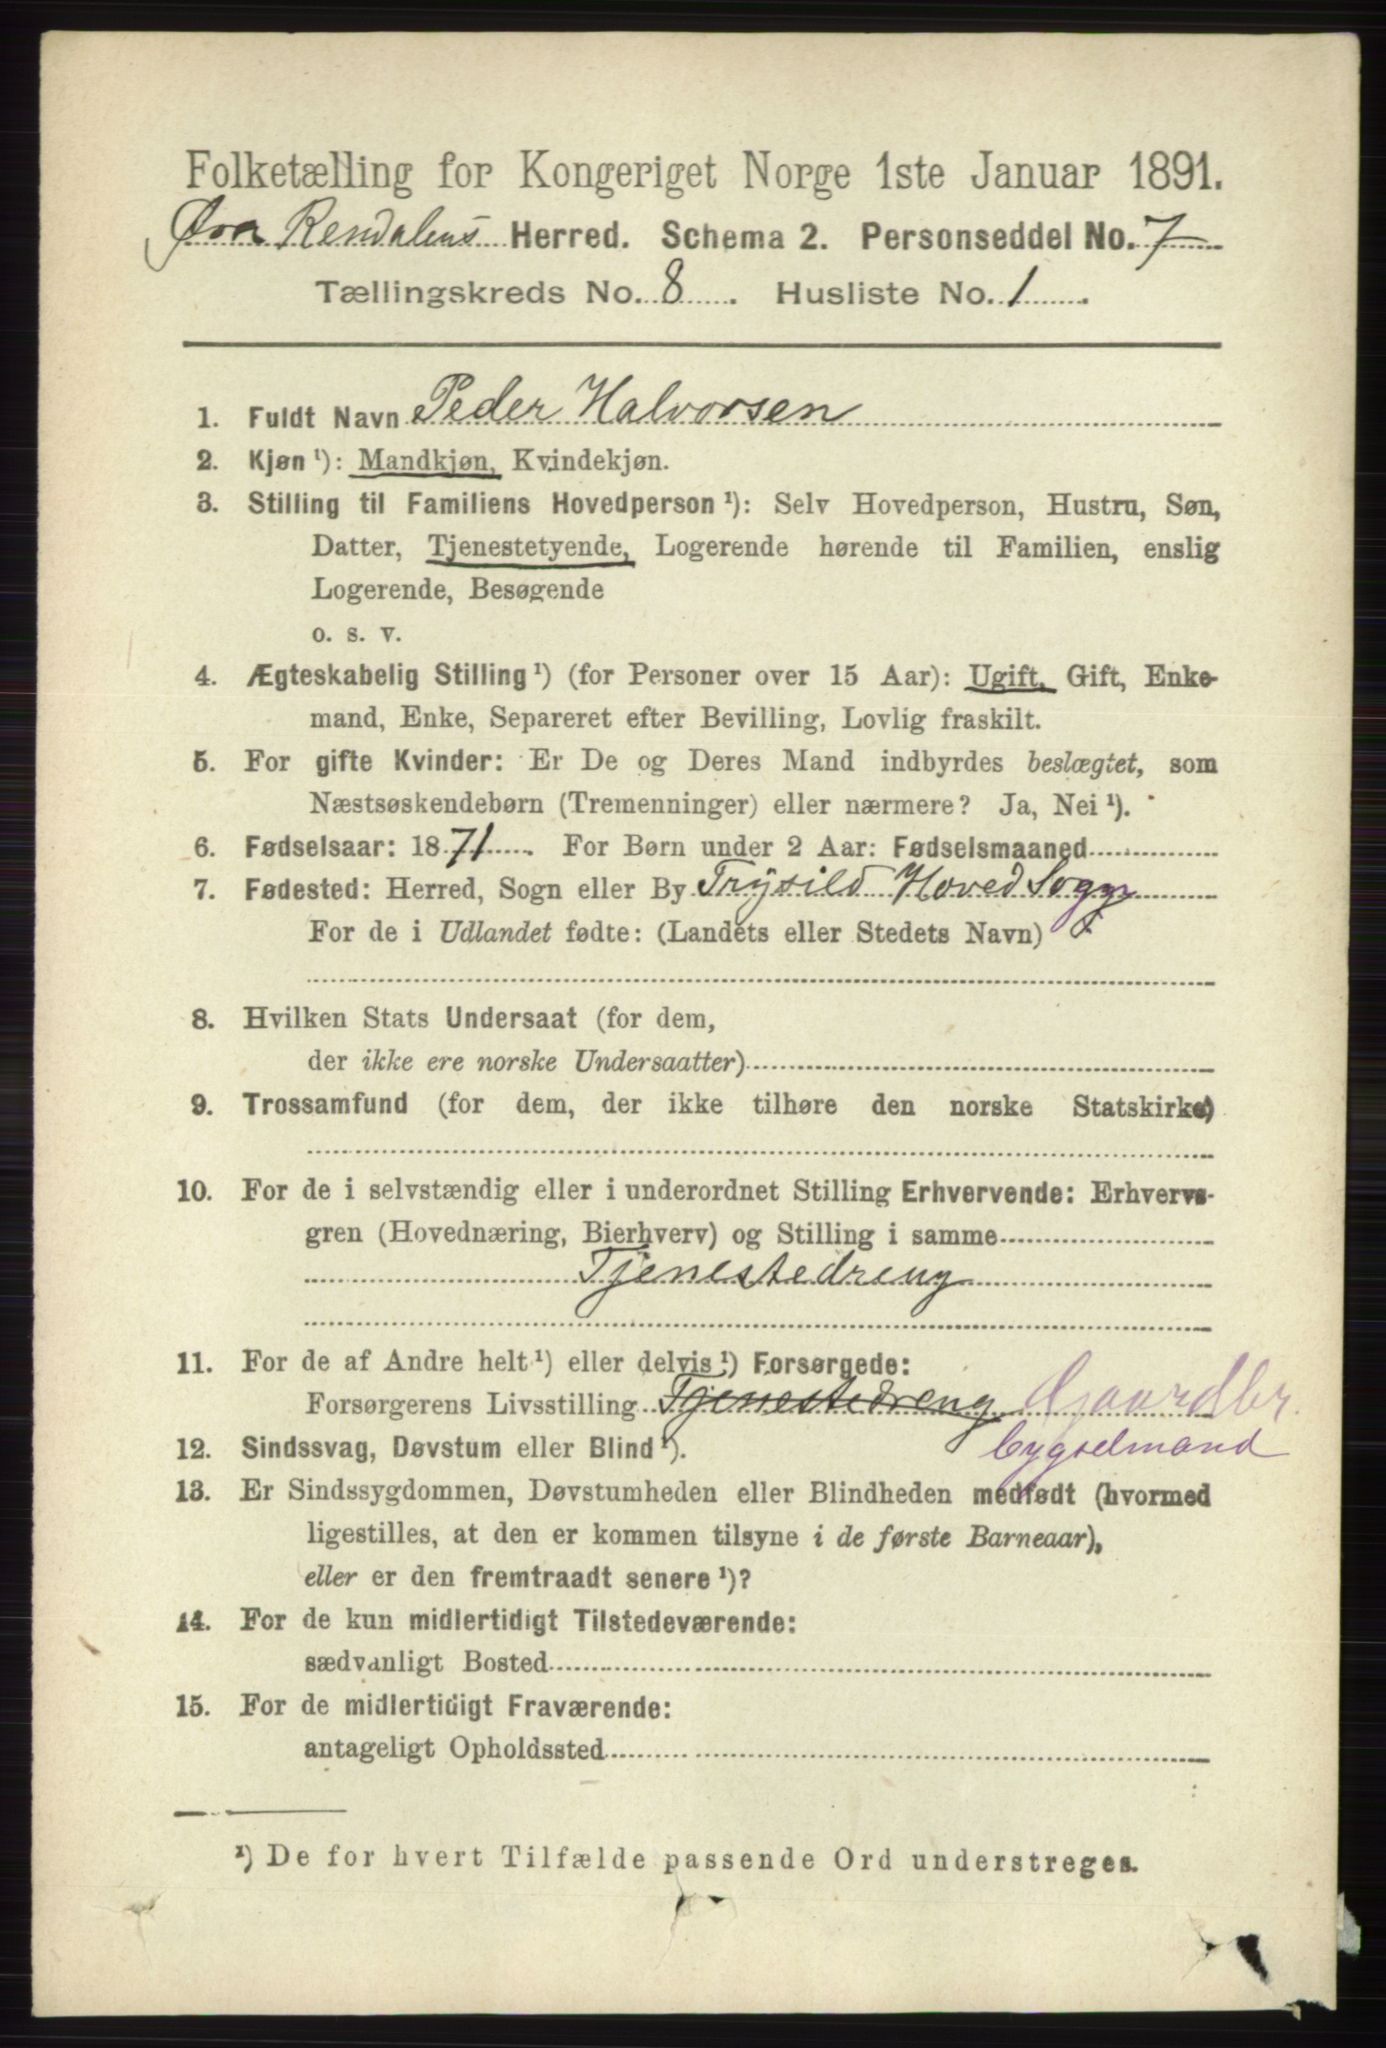 Folketælling for Kongeriget Norge 1ste Januar 1891.
Øvre Rendalens Herred. Schema 2. Personseddel No. 7
Tællingskreds No. 8. Husliste No. 1.
1. Fuldt Navn Peder Halvorsen
2. Kjøn ¹): Mandkjøn, Kvindekjøn.
3. Stilling til Familiens Hovedperson ¹): Selv Hovedperson, Hustru, Søn,
Datter, Tjenestetyende, Logerende hørende til Familien, enslig
Logerende, Besøgende
o. s. v.
4. Ægteskabelig Stilling ¹) (for Personer over 15 Aar): Ugift, Gift, Enke-
mand, Enke, Separeret efter Bevilling, Lovlig fraskilt.
5. For gifte Kvinder: Er De og Deres Mand indbyrdes beslægtet, som
Næstsøskendebørn (Tremenninger) eller nærmere? Ja, Nei ¹).
6. Fødselsaar: 1871. For Børn under 2 Aar: Fødselsmaaned
7. Fødested: Herred, Sogn eller By Trysild Hoved Sogn
For de i Udlandet fødte: (Landets eller Stedets Navn)
8. Hvilken Stats Undersaat (for dem,
der ikke ere norske Undersaatter)
9. Trossamfund (for dem, der ikke tilhøre den norske Statskirke)
10. For de i selvstændig eller i underordnet Stilling Erhvervende: Erhvervs-
gren (Hovednæring, Bierhverv) og Stilling i samme
Tjenestedreng
11. For de af Andre helt ¹) eller delvis ¹) Forsørgede:
Forsørgerens Livsstilling Tjenestedreng Gaardbr.
12. Sindssvag, Døvstum eller Blind ¹). bygselmand
13. Er Sindssygdommen, Døvstumheden eller Blindheden medfødt (hvormed
ligestilles, at den er kommen tilsyne i de første Barneaar),
eller er den fremtraadt senere ¹)?
14. For de kun midlertidigt Tilstedeværende:
sædvanligt Bosted
15. For de midlertidigt Fraværende:
antageligt Opholdssted
¹) De for hvert Tilfælde passende Ord understreges.